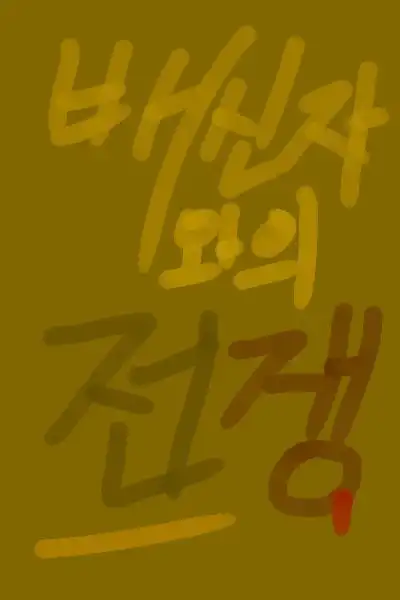 배신자
와의
전쟁